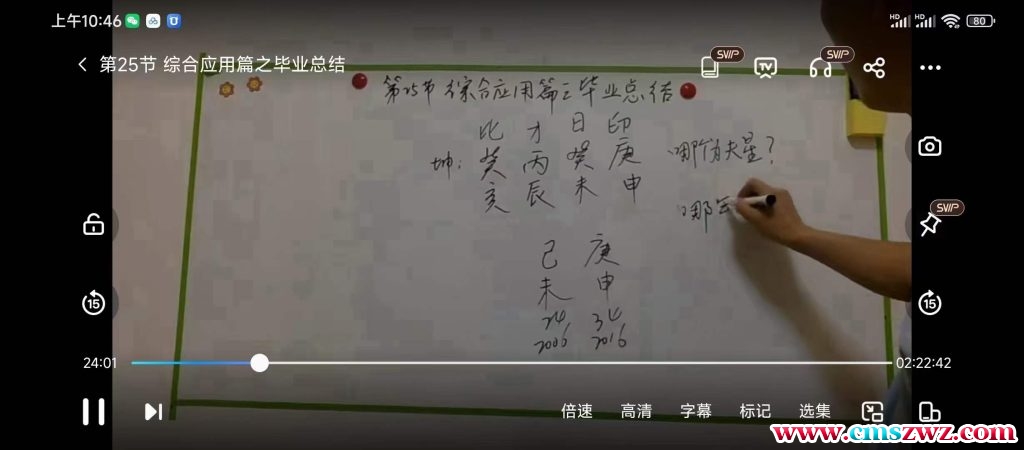 上午10:46
HD HD 80
第25节 综合应用篇之毕业总结
SVIP SVIP
TV
第25节 综合应用篇之毕业总结
比 才 日 印
坤: 癸 丙 癸 庚
亥 辰 未 申
哪个为夫星?
哪
SVIP
己 庚
未 申
24 34
2006 2016
15 15
24:01
02:22:42
倍速 高清 字幕 标记 选集
www.cmszwz.com